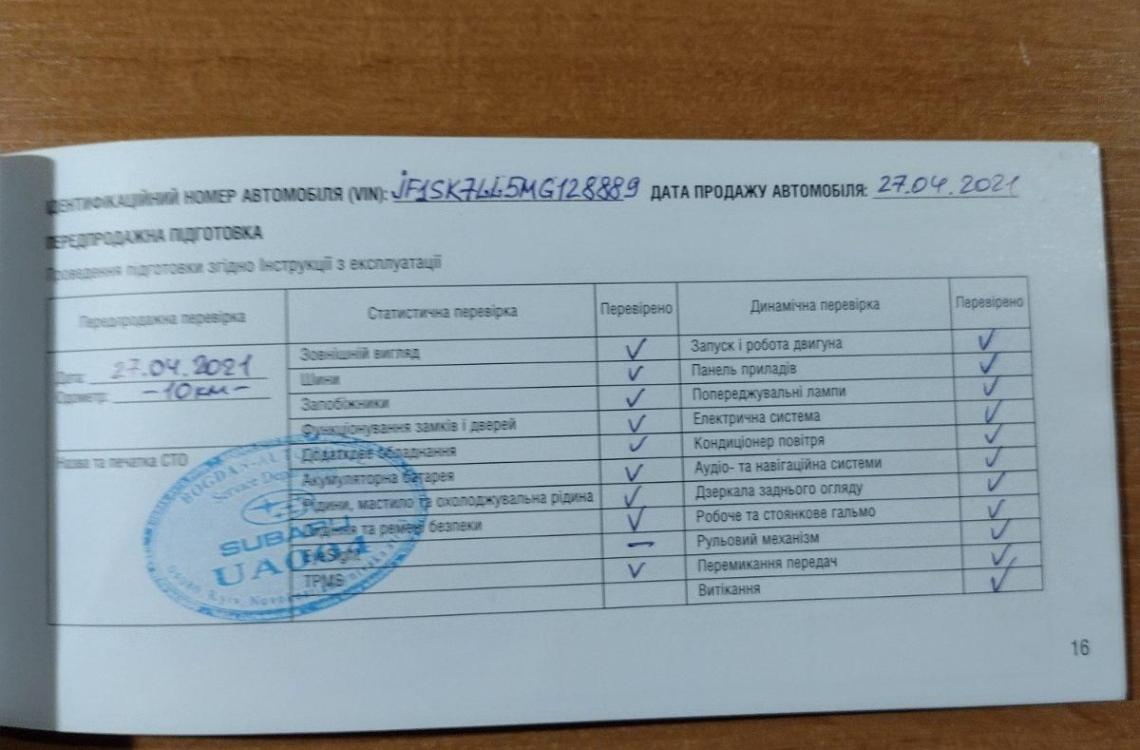 ІДЕНТИФІКАЦІЙНИЙ НОМЕР АВТОМОБІЛЯ (VIN): JF1SK7LL5MG128889 ДАТА ПРОДАЖУ АВТОМОБІЛЯ: 27.04.2021
ПЕРЕДПРОДАЖНА ПІДГОТОВКА
Проведення підготовки згідно Інструкції з експлуатації
Передпродажна перевірка Статистична перевірка Перевірено Динамічна перевірка Перевірено
Дата: 27.04.2021
Одометр: -10км-
Назва та печатка СТО
Зовнішній вигляд ✓ Запуск і робота двигуна ✓
Шини ✓ Панель приладів ✓
Запобіжники ✓ Попереджувальні лампи ✓
Функціонування замків і дверей ✓ Електрична система ✓
Додаткове обладнання ✓ Кондиціонер повітря ✓
Акумуляторна батарея ✓ Аудіо- та навігаційна системи ✓
Рідини, мастило та охолоджувальна рідина ✓ Дзеркала заднього огляду ✓
Сидіння та ремені безпеки ✓ Робоче та стоянкове гальмо ✓
EyeSight — Рульовий механізм ✓
TPMS ✓ Перемикання передач ✓
Витікання ✓
BOGDAN-AUT
Service Dep
SUBARU
UA004
Kyiv, Novo
16